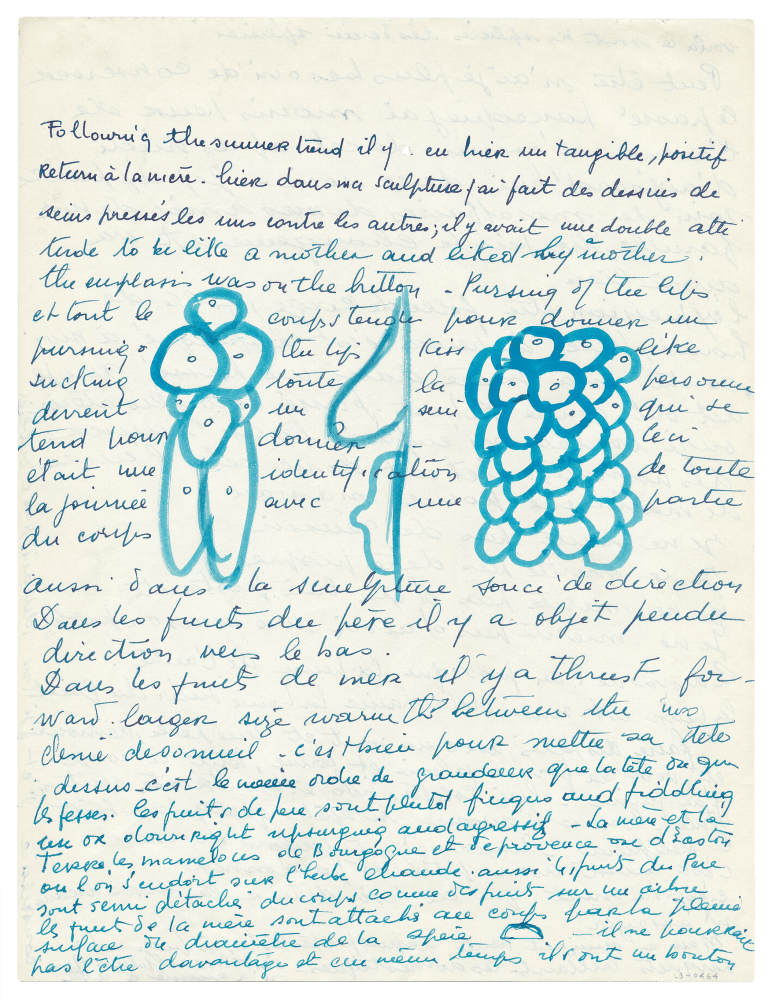 Following the summer trend il y. eu hier un tangible, positif
Return à la mère. hier dans ma sculpture j'ai fait des dessins de
seins pressés les uns contre les autres; il y avait une double atti
tude to be like a mother and liked by a mother.
the emphasis was on the button - Pursing of the lips
et tout le corps tendu pour donner un
pursing the lip Kiss like
sucking toute la personne
devient un sein qui se
tend pour donner Ceci
était une identification de toute
la journée avec une partie
du corps
aussi dans la sculpture souci de direction
Dans les fruits du père il y a objet pendu
direction vers le bas.
Dans les fruits de mer il y a thrust for-
ward. larger size warmth between the
de sommeil - c'est bien pour mettre sa tete
dessus - c'est le même ordre de grandeur que la tête ou que
les fesses. les fruits de pere sont plutot fingers and fiddling
un or downright upsurging and agressif - La mère et la
Terre, les mamelons de Bourgogne et de provence ou d'Easton
ou l'on s'endort sur l'herbe chaude. aussi les fruits du Pere
sont semi détachés du corps comme des fruits sur un arbre
les fruits de la mère sont attachés au corps par la pleine
surface du diamètre de la spère - il ne pourrait
pas l'être davantage et en même temps ils ont un bouton